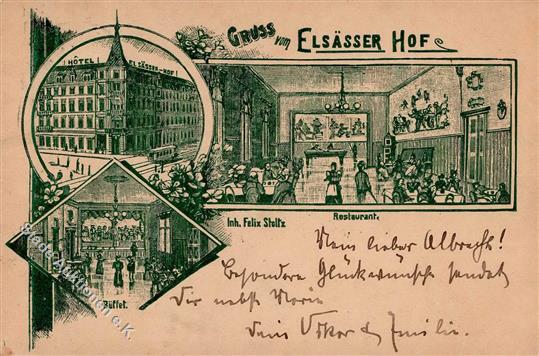 Gruss vom Elsässer Hof
HÔTEL ELSÄSSER-HOF
Inh. Felix Stoltz
Restaurant.
Büffet.
Mein lieber Albrecht!
Besondere Glückwünsche sendet
Dir nebst Marie
Dein Oskar & Familie.